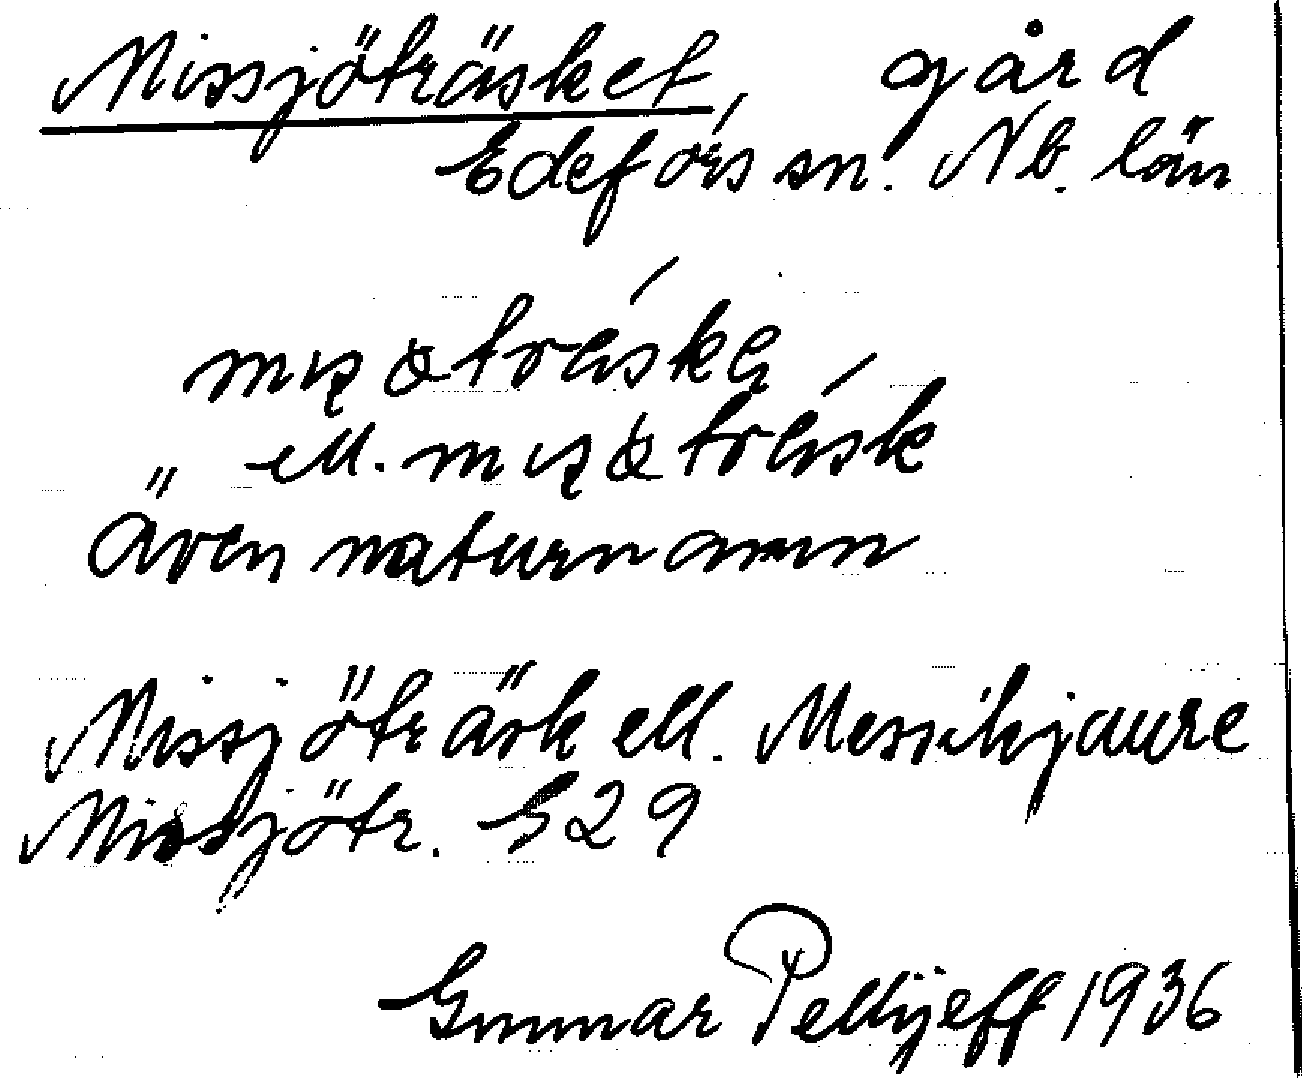 Missjöträsket, gård
Edefors sn. Nb. län
ell.
Även naturnamn
Missjöträsk ell. Messikjaure
Missjötr. G29
Gunnar Pellijeff 1936